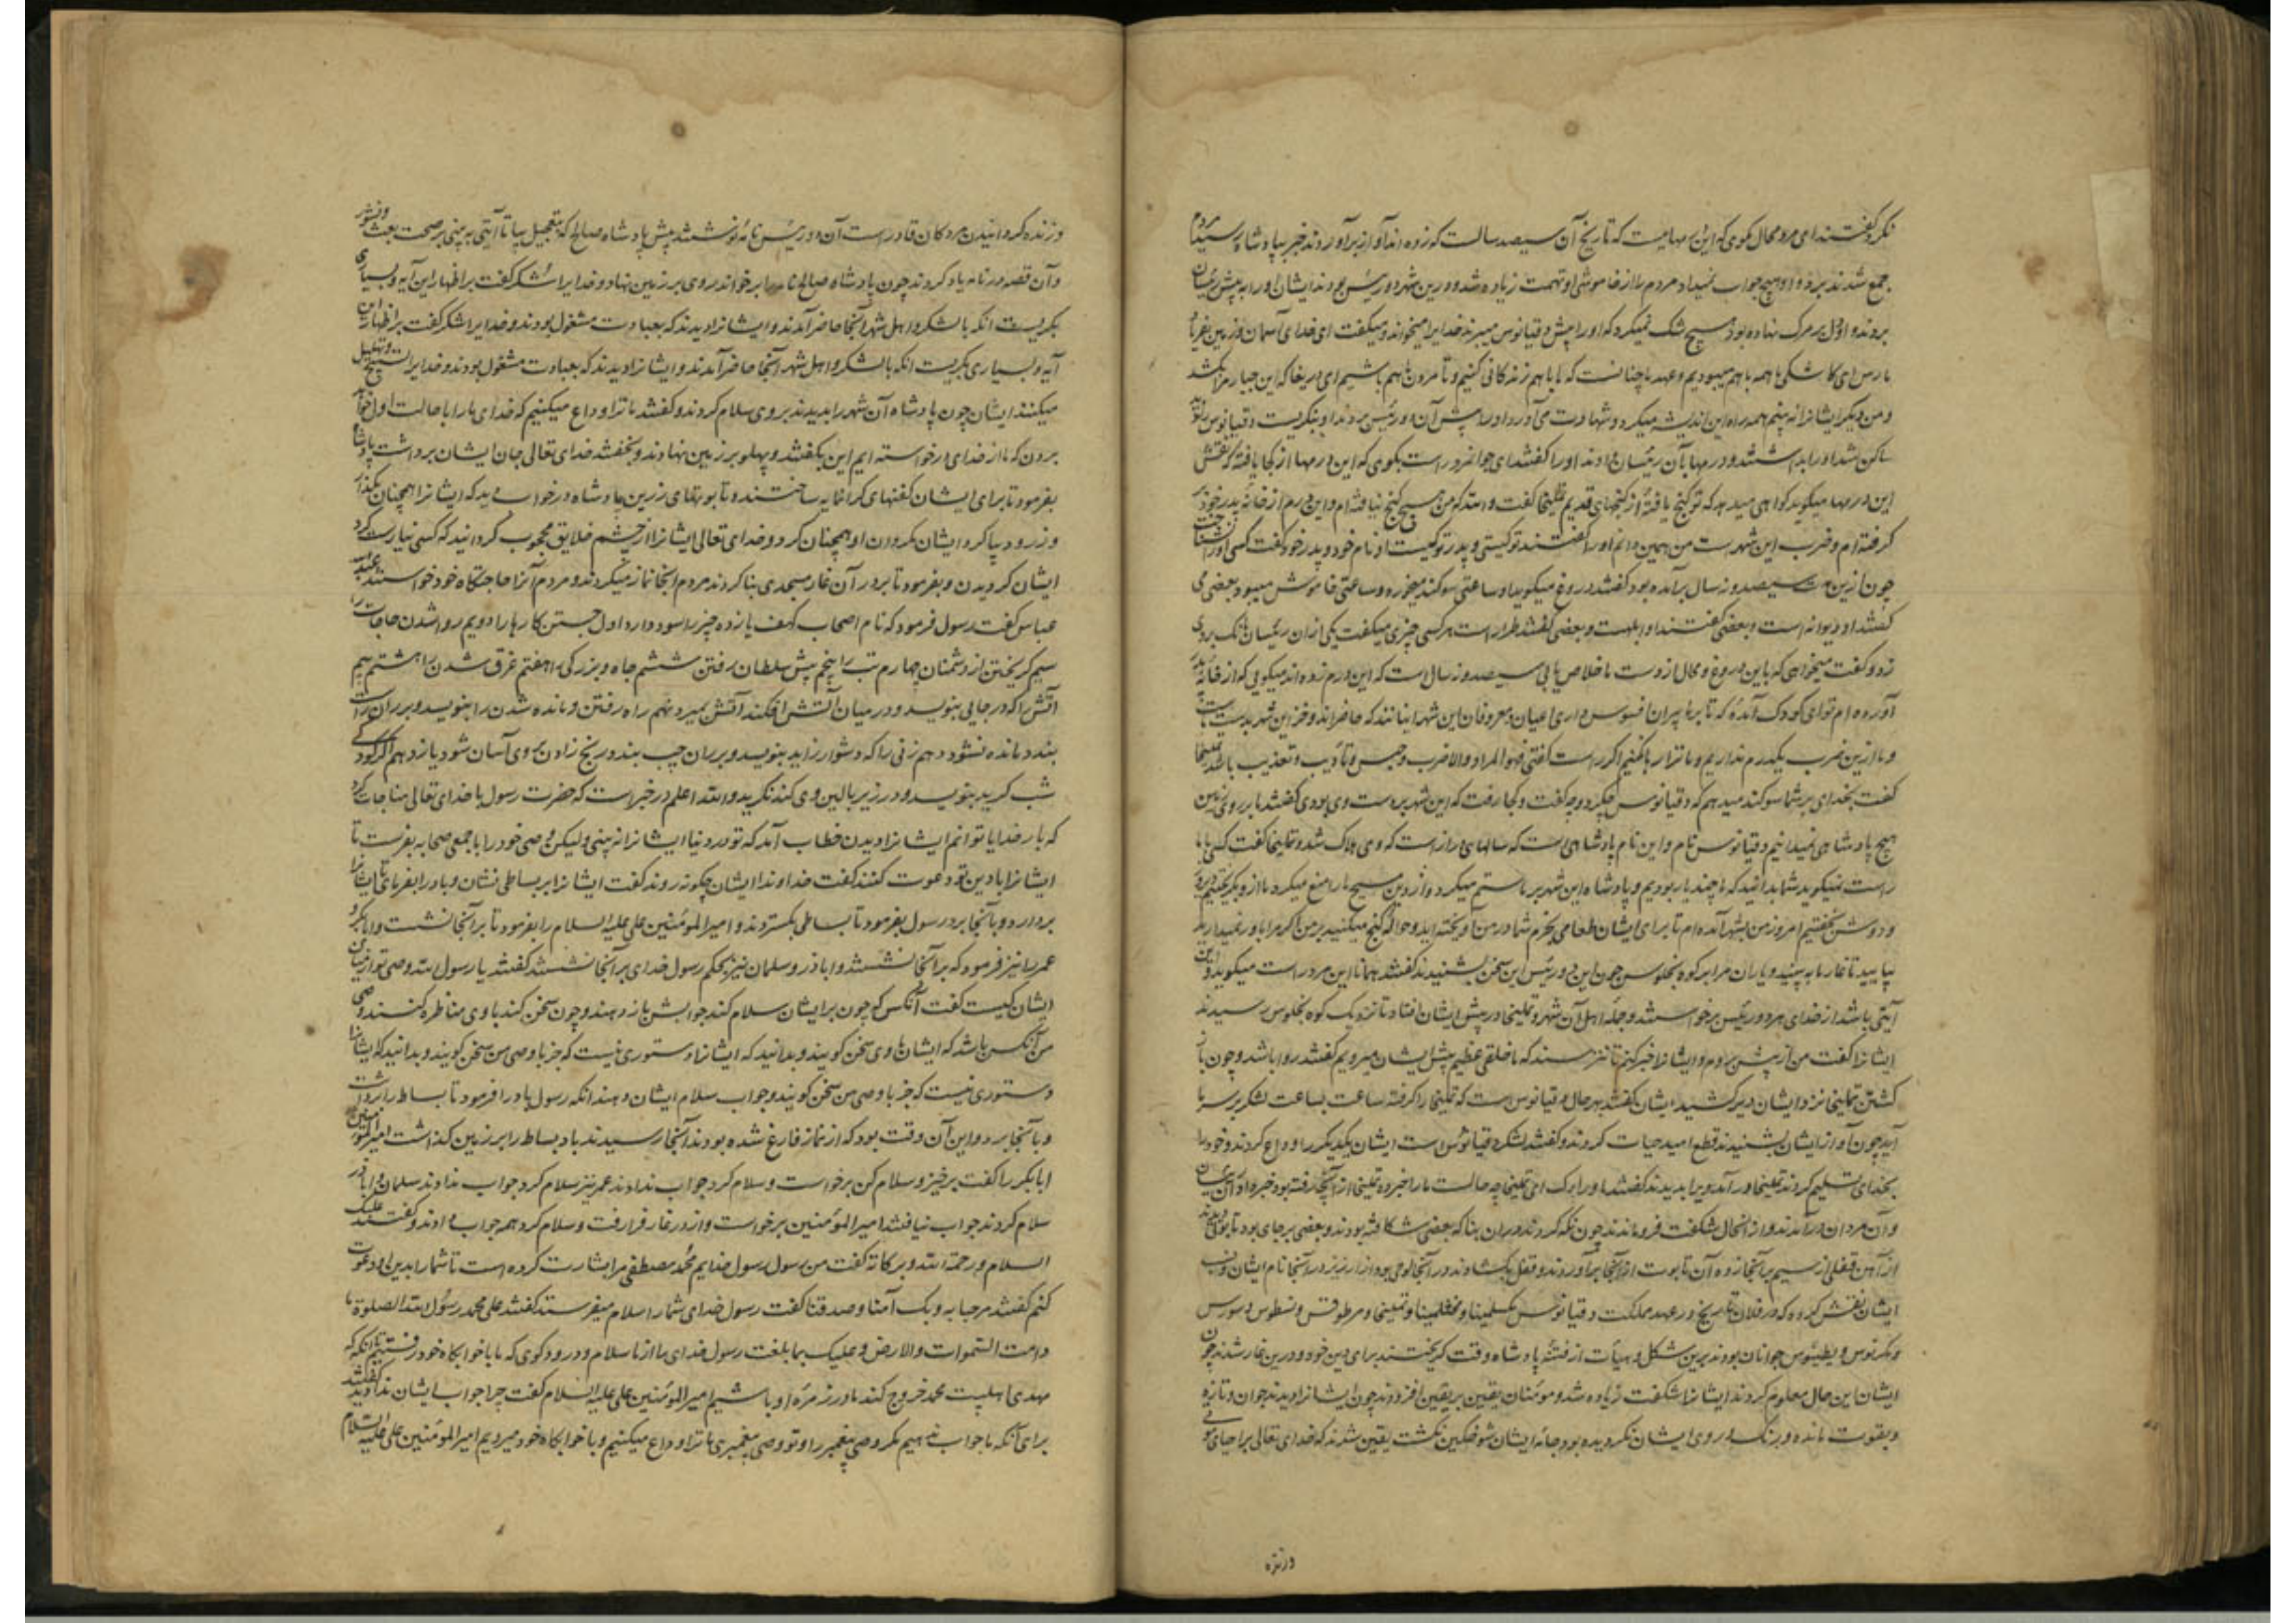 نکرد گفتند ای مرد محال مکوی که این درمهاست که تاریخ آن سیصد سالست که زده اند آواز برآوردند خبر بپادشاه رسید مردم
جمع شدند بر در و او هیچ جواب نمیداد مردم را از خاموشی او تهمت زیاده شد و درین شهر دو رئیس بودند ایشان او را به پیش رئیسان
بردند و او دل بر مرک نهاده بود هیچ شک نمیکرد که او را پیش دقیانوس میبرند خدایرا میخواند و میکفت ای خدای آسمان و زمین بفریاد
ما رس ای کاشکی ما همه با هم میبودیم و عهد ما چنانست که ما با هم زندکانی کنیم و تا مردن با هم باشیم ای دریغا که این جبار مرا بکشد
و من دیکر ایشانرا نه بینم همه راه این اندیشه میکرد و شهادت می آورد او را پیش آن دو رئیس بردند او بنکریست دقیانوس را ندید
ساکن شد او را بداشتند و درمها بآن رئیسان دادند او را کفتند ای جوانمرد راست بکوی که این درمها از کجا یافته که نقش
این درمها میکوید کواهی میدهد که تو کنج یافتهٔ از کنجهای قدیم تملیخا کفت والله که من هیچ کنج نیافته ام و این درم از خانهٔ پدر خود بر
کرفته ام و ضرب این شهرست من همین دانم او را کفتند تو کیستی و پدر تو کیست او نام خود و پدر خود کفت کسی او را نشناخت
چون ازین مدت سیصد و نه سال برآمده بود کفتند دروغ میکوید او ساعتی سوکند میخورد و ساعتی خاموش میبود بعضی می
کفتند او دیوانه است و بعضی کفتند او ابلهست و بعضی کفتند طرار است هر کسی چیزی میکفت یکی از آن رئیسان بانک بر وی
زد و کفت میخواهی که باین دروغ و محال از دست ما خلاص یابی سیصد و نه سال است که این درم زده اند میکویی که از خانهٔ پدر
آورده ام تو ای کودک آمدهٔ که تا بر ما پیران افسوس داری اعیان و معروفان این شهر اینانند که حاضراند و خزاین شهر بدست ماست
و ما ازین ضرب یکدرم نداریم و ما ترا رها نکنیم اکر راست کفتی فهو المراد و الا ضرب و حبس و تأدیب و تعذیب باشد تملیخا
کفت بخدای بر شما سوکند میدهم که دقیانوس چکرد و چه کفت و کجا رفت که این شهر بدست وی بودی کفتند ما بر روی زمین
هیچ پادشاهی نمیدانیم دقیانوس نام و این نام پادشاهی است که سالهای دراز است که وی هلاک شد و تملیخا کفت کسی با ما
راست نمیکوید شما بدانید که ما چند یار بودیم و پادشاه این شهر بر ما ستم میکرد و از دین مسیح ما را منع میکرد ما از و بکریختیم دیروز
و دوش بخفتیم امروز من بشهر آمده ام تا برای ایشان طعامی بخرم شما در من آویخته اید و حوالهٔ کنج میکنید بر من اکر مرا باور نمیدارید
بیایید تا غار ما به بینید و یاران مرا بر کوه بنجلوس چون این دو رئیس این سخن بشنیدند کفتند همانا این مرد راست میکوید و این
آیتی باشد از خدای هر دو رئیس برخواستند و جملهٔ اهل آن شهر و تملیخا در پیش ایشان افتاد تا نزدیک کوه بنجلوس رسیدند
ایشانرا کفت من از پیش بروم و ایشانرا خبر کنم تا نترسند که ما خلقی عظیم پیش ایشان میرویم کفتند روا باشد و چون باز
کشتن تملیخا نزد ایشان دیر کشید ایشان کفتند بهر حال دقیانوس است که تملیخا را کرفته ساعت بساعت لشکر بر سر ما
آید چون آواز ایشان بشنیدند قطع امید حیات کردند و کفتند لشکر دقیانوس است ایشان یکدیکر را وداع کردند و خود را
بخدای تسلیم کردند تملیخا در آمد ویرا بدیدند کفتند ما را درک ای تملیخا چه حالست ما را خبر ده تملیخا از آنچه رفته بود خبر داد آن رئیسان
و آن مردان درآمدند و از آنحال شکفت فرو ماندند چون نکه کردند در آن بنا که بعضی شکافته بودند و بعضی بر جای بود تابوتی دیدند
از آهن قفلی از سیم بر آنجا زده آن تابوت از آنجا برآوردند و قفل بکشادند در آنجا لوحی بود از ارزیز در آنجا نام ایشان و نسب
ایشان نقش کرده که در فلان تاریخ در عهد مملکت دقیانوس مکسلمینا و مخثلمینا و تملیخا و مرطوقس و نسطوس و سورس
و بکرنوس و بطینوس جوانان بودند برین شکل و هیأت از فتنهٔ پادشاه وقت کریختند برای دین خود و درین غار شدند چون
ایشان این حال معلوم کردند ایشانرا شکفت زیاده شد و مومنان یقین بر یقین افزودند چون ایشانرا دیدند جوان و تازه
و بقوت مانده و برنک و روی ایشان نکردیده بود جامهٔ ایشان شوخکین نکشت یقین شدند که خدای تعالی بر احیای موتی
و زنده
و زنده کردانیدن مردکان قادر است آن دو رئیس نامه نوشتند پیش پادشاه صالح که بتعجیل بیا تا آیتی به بینی بر صحت بعث و نشور
و آن قصه در نامه یاد کردند چون پادشاه صالح نامه را برخواند بروی بر زمین نهاد و خدایرا شکر کفت بر اظهار این آیه و بسیاری
بکریست آنکه با لشکر و اهل شهر آنجا حاضر آمدند و ایشانرا دیدند که بعبادت مشغول بودند و خدایرا شکر کفت بر اظهار این
آیه و بسیاری بکریست آنکه با لشکر و اهل شهر آنجا حاضر آمدند و ایشانرا دیدند که بعبادت مشغول بودند و خدایرا تسبیح و تهلیل
میکنند ایشان چون پادشاه آن شهر را بدیدند بر وی سلام کردند و کفتند ما ترا وداع میکنیم که خدای ما را با حالت اول خواهد
بردن که ما از خدای درخواسته ایم این بکفتند و پهلو بر زمین نهادند و بخفتند خدای تعالی جان ایشان برداشت پادشاه
بفرمود تا برای ایشان کفنهای کرانمایه ساختند و تابوتهای زرین پادشاه در خواب دید که ایشانرا همچنان بکذار
و زر و دیبا کرد ایشان مکردان او همچنان کرد و خدای تعالی ایشانرا از چشم خلایق محجوب کردانید که کسی نیارست کرد
ایشان کردیدن و بفرمود تا بر در آن غار مسجدی بنا کردند مردم آنجا نماز میکردند و مردم آنرا حاجتکاه خود خواستند عبدالله
عباس کفت رسول فرمود که نام اصحاب کهف یازده چیز را سود دارد اول جستن کارها را دویم روا شدن حاجات را
سیم کریختن از دشمنان چهارم تب را پنجم پیش سلطان رفتن ششم جاه و بزرکی را هفتم غرق شدن را هشتم بیم
آتش را که در جایی بنویسد و در میان آتش افکند آتش بمیرد نهم راه رفتن و مانده شدن را بنویسد و بر ران راست
بندد مانده نشود دهم زنی را که دشوار زاید بنویسد و بر ران چپ بندد رنج زادن بر وی آسان شود یازدهم اکر کودک
شب کرید بنویسد و در زیر بالین وی کند نکرید والله اعلم در خبر است که حضرت رسول با خدای تعالی مناجات کرد
که بار خدایا توانم ایشانرا دیدن خطاب آمد که تو در دنیا ایشانرا نه بینی ولیکن وصی خود را با جمعی صحابه بفرست تا
ایشانرا بادین تو دعوت کنند کفت خداوندا ایشان چکونه روند کفت ایشانرا بر بساطی نشان و باد را بفرمای تا ایشانرا
بردارد و بآنجا برد رسول بفرمود تا بساطی بکستردند و امیرالمؤمنین علی علیه السلام را بفرمود تا بر آنجا نشست و ابابکر و
عمر را نیز فرمود که بر آنجا نشستند و اباذر و سلمان نیز بحکم رسول خدای بر آنجا نشستند کفتند یا رسول الله وصی تو از میان
ایشان کیست کفت آنکس که چون بر ایشان سلام کند جوابش باز دهند و چون سخن کند با وی مناظره کنند وصی
من آنکس باشد که ایشان با وی سخن کویند و بدانید که ایشانرا دستوری نیست که جز با وصی من سخن کویند و بدانید که ایشانرا
دستوری نیست که جز با وصی من سخن کویند و جواب سلام ایشان دهند آنکه رسول باد را فرمود تا بساط را برداشت
و بآنجا برد و این آن وقت بود که از نماز فارغ شده بودند آنجا رسیدند باد بساط را بر زمین کذاشت امیرالمومنین
ابابکر را کفت برخیز و سلام کن برخواست و سلام کرد جواب ندادند عمر نیز سلام کرد جواب ندادند سلمان و اباذر
سلام کردند جواب نیافتند امیرالمؤمنین برخواست و از در غار فرا رفت و سلام کرد همه جواب دادند و کفتند علیک
السلام و رحمة الله و برکاته کفت من رسول رسول خدایم محمد مصطفی مرا بشارت کرده است تا شما را بدین او دعوت
کنم کفتند مرحبا به و بک آمنا و صدقنا کفت رسول خدای شما را سلام میفرستد کفتند علی محمد رسول الله الصلوة ما
دامت السموات و الارض و علیک بما بلغت رسول خدای را از ما سلام و درود کوی که ما با خوابکاه خود رفتیم تا آنکه که
مهدی اهلبیت محمد خروج کند ما در زمرهٔ او باشیم امیرالمؤمنین علی علیه السلام کفت چرا جواب ایشان ندادید کفتند
برای آنکه ما جواب ندهیم مکر وصی پیغمبر را و تو وصی پیغمبری ما ترا وداع میکنیم و با خوابکاه خود میرویم امیرالمومنین علی علیه السلام